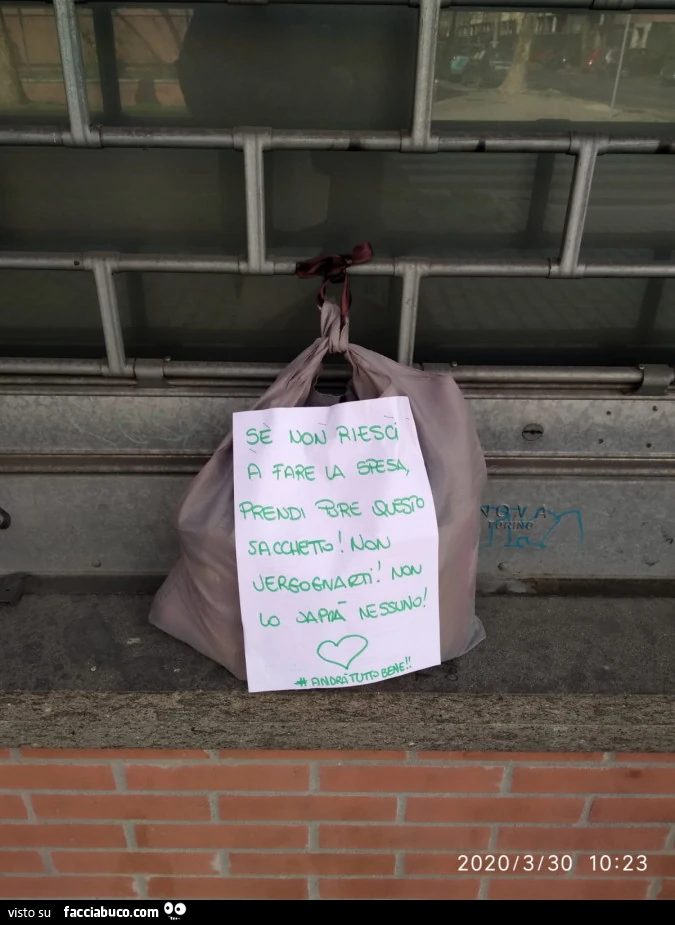 SE NON RIESCI
A FARE LA SPESA,
PRENDI PURE QUESTO
SACCHETTO! NON
VERGOGNARTI! NON
LO SAPRÀ NESSUNO!
#ANDRÀTUTTOBENE!!
NOVA
TORINO
2020/3/30 10:23
visto su facciabuco.com